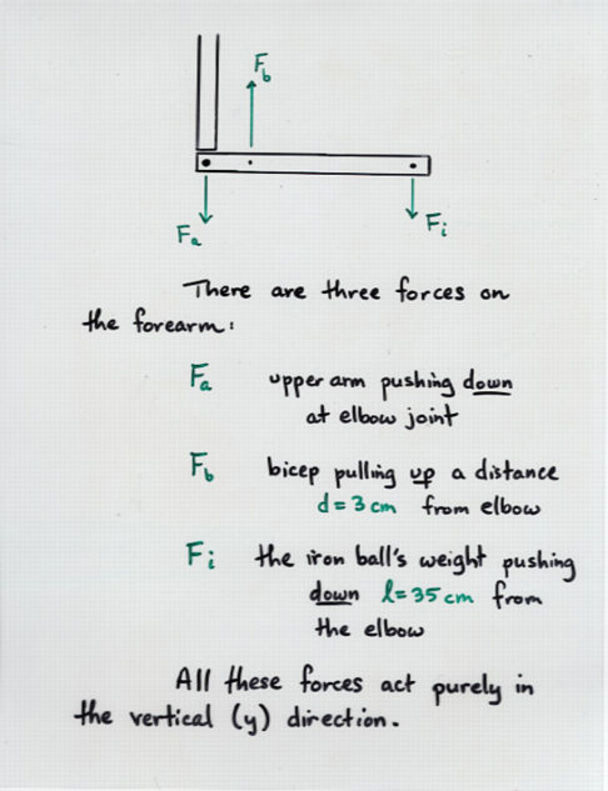 F_b
F_a
F_i
There are three forces on
the forearm:
F_a upper arm pushing down
at elbow joint
F_b bicep pulling up a distance
d = 3 cm from elbow
F_i the iron ball's weight pushing
down l = 35 cm from
the elbow
All these forces act purely in
the vertical (y) direction.